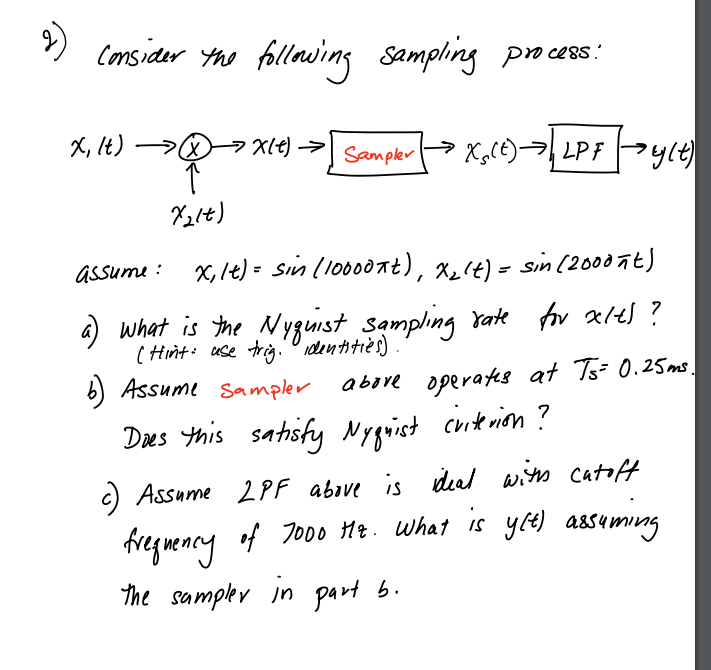 2) Consider the following sampling process:
x₁(t) → X → x(t) → Sampler → xₛ(t) → LPF → y(t)
x₂(t)
assume: x₁(t) = sin(10000πt), x₂(t) = sin(2000πt)
a) what is the Nyquist sampling rate for x(t)?
(Hint: use trig. identities).
b) Assume Sampler above operates at Ts = 0.25ms.
Does this satisfy Nyquist criterion?
c) Assume LPF above is ideal with cutoff
frequency of 7000 Hz. What is y(t) assuming
the sampler in part b.